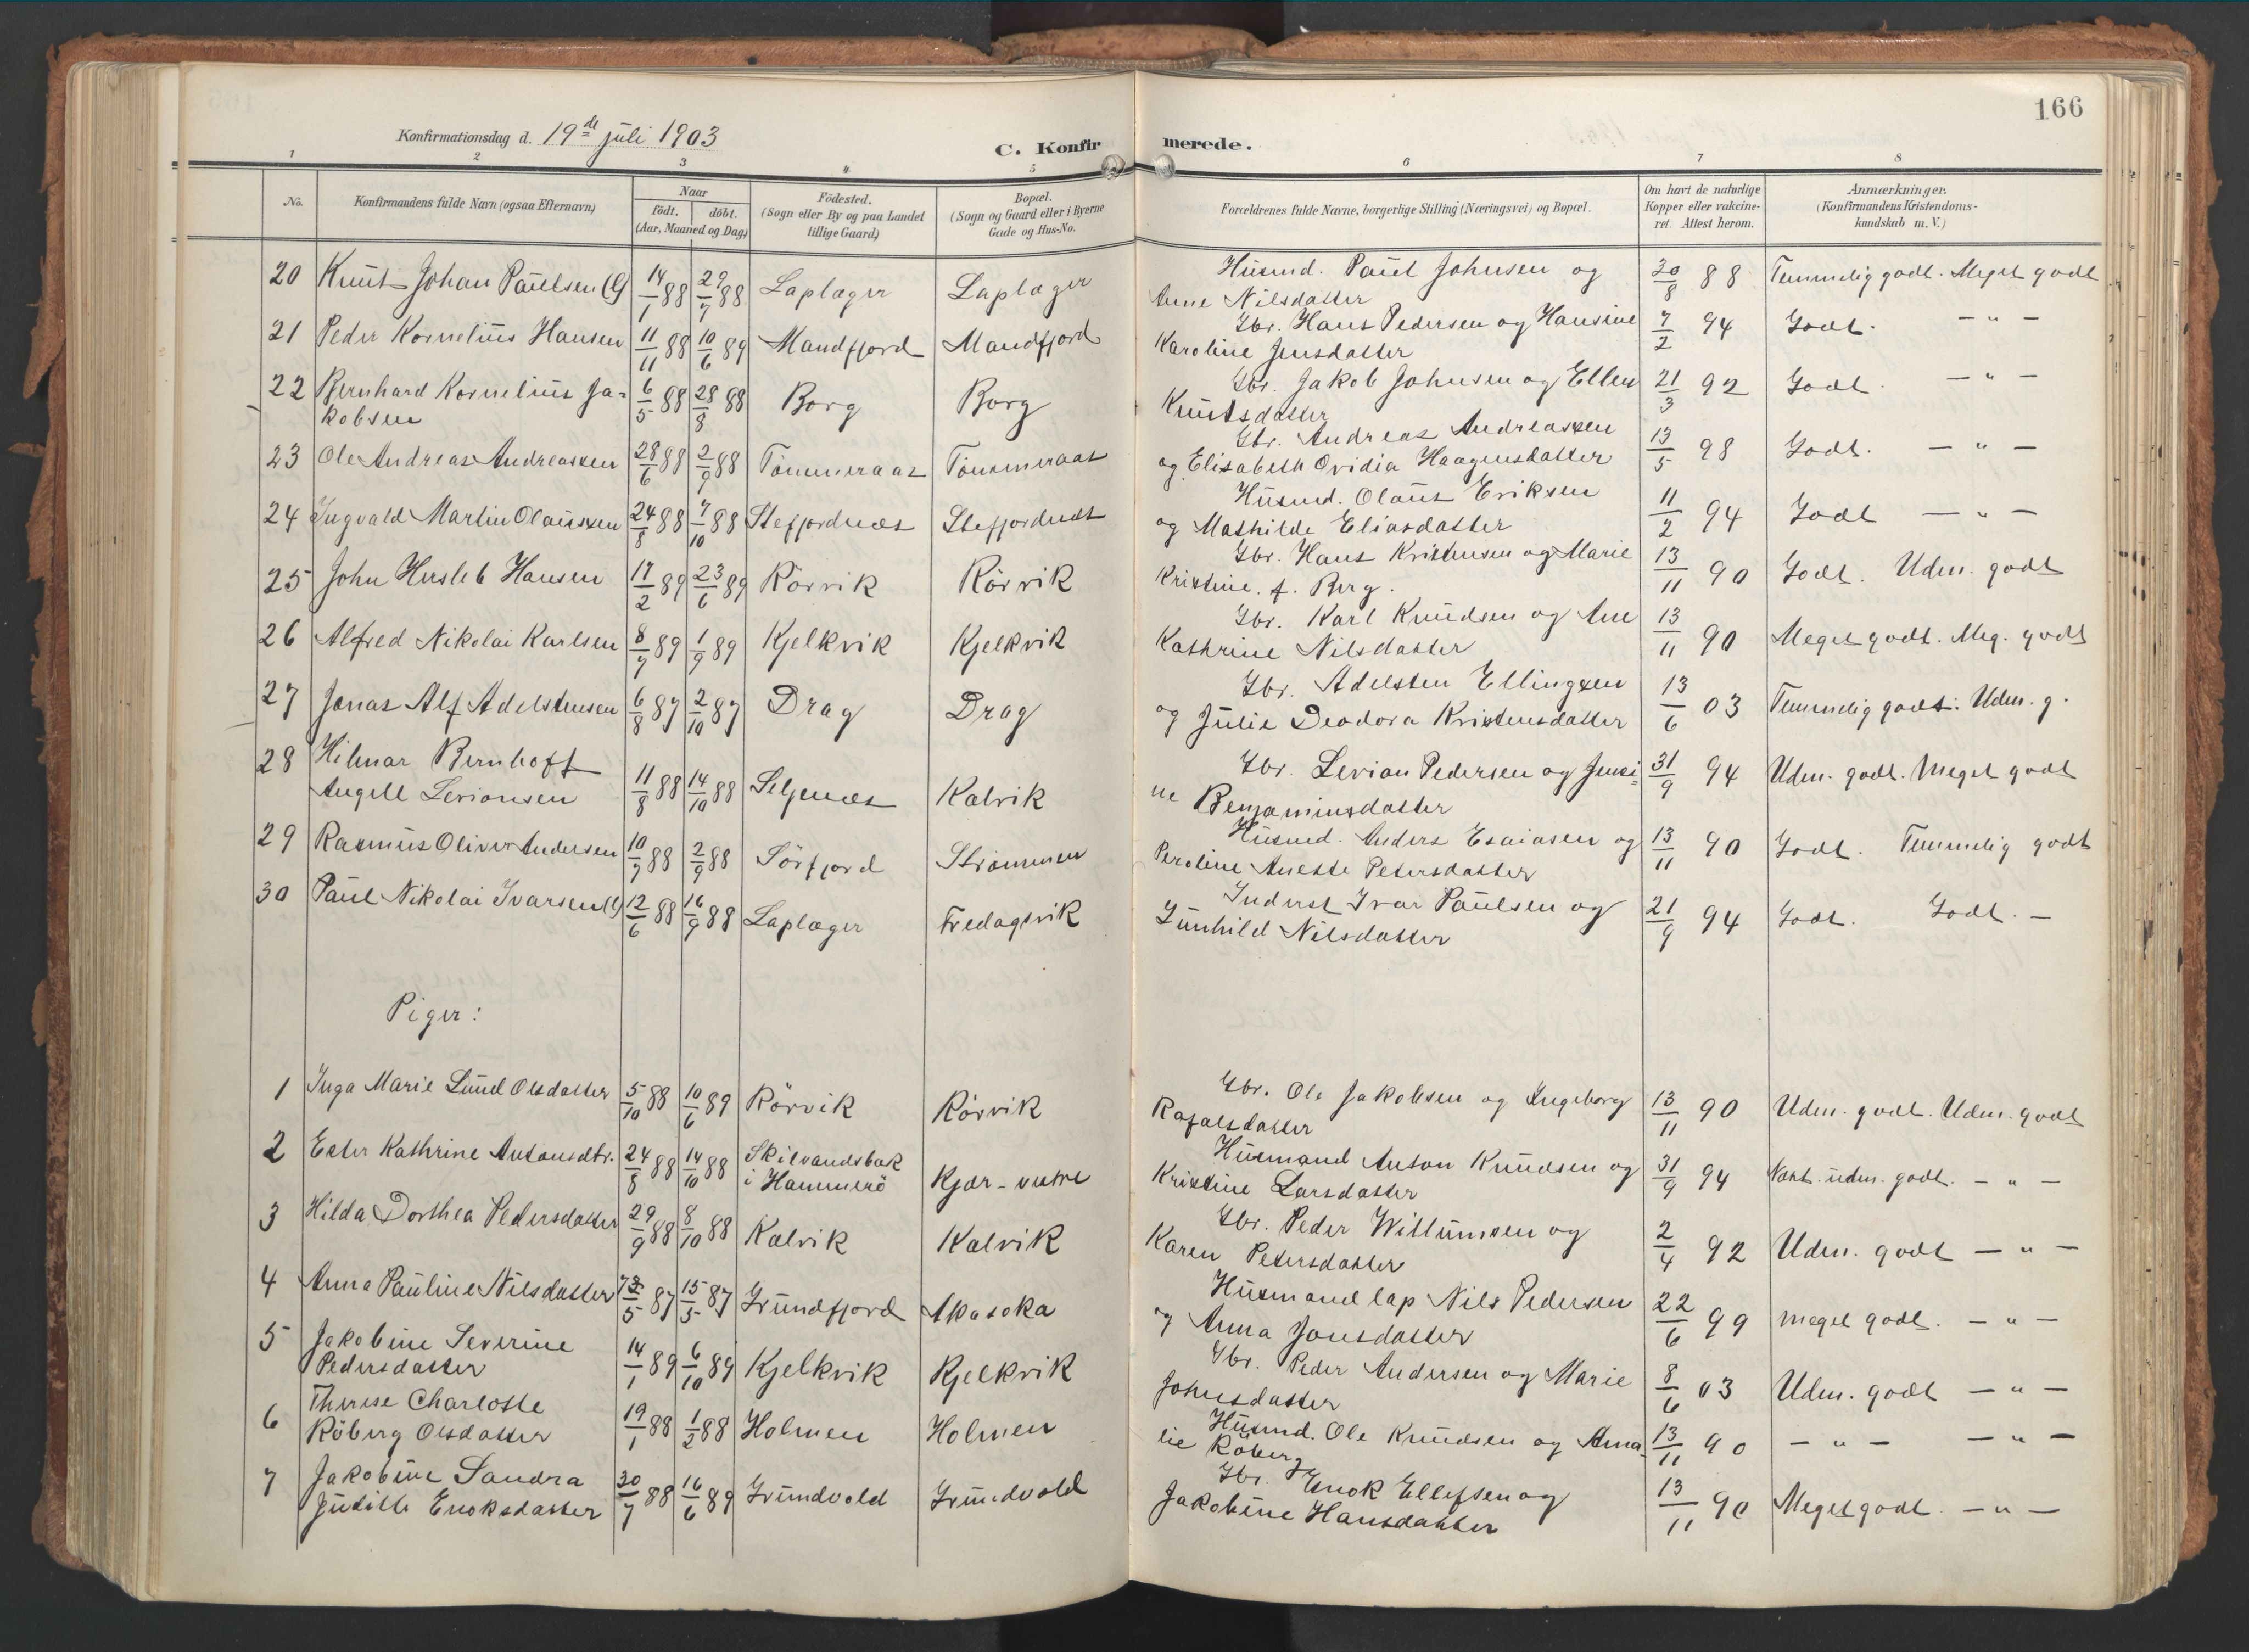 166
Konfirmationsdag d. 19de juli 1903
C. Konfirmerede.
1 2 3 4 5 6 7 8
No.
Konfirmandens fulde Navn (ogsaa Efternavn)
Naar
födt. döbt.
(Aar, Maaned og Dag)
Födested.
(Sogn eller By og paa Landet
tillige Gaard)
Bopæl.
(Sogn og Gaard eller i Byerne
Gade og Hus-No.
Forældrenes fulde Navne, borgerlige Stilling (Næringsvei) og Bopæl.
Om havt de naturlige
Kopper eller vakcine-
ret. Attest herom.
Anmærkninger.
(Konfirmandens Kristendoms-
kundskab m. V.)
20 Knut Johan Paulsen (l) 14/1 88 29/7 88 Laplæger Laplæger Husmd. Paul Johnsen og 30/8 88 Temmelig godt. Meget godt
Anne Nilsdatter
21 Peder Kornelius Hansen 11/11 88 10/6 89 Mandfjord Mandfjord Gbr. Hans Pedersen og Hansine 7/2 94 Godt. — " —
Karoline Jensdatter
22 Bernhard Kornelius Ja- 6/5 88 28/8 88 Borg Borg Gbr. Jakob Johnsen og Ellen 21/3 92 Godt. — " —
kobsen Knutsdatter
23 Ole Andreas Andreassen 28/6 88 2/9 88 Tömmeraas Tömmeraas Gbr. Andreas Andreassen 13/5 98 Godt. — " —
og Elisabeth Ovidia Haagensdatter
24 Ingvald Martin Olaussen 24/8 88 7/10 88 Stefjordnæs Stefjordnæs Husmd. Olaus Eriksen 11/2 94 Godt — " —
og Mathilde Eliasdatter
25 John Hersleb Hansen 17/2 89 23/6 89 Rörvik Rörvik Gbr. Hans Kristensen og Marie 13/11 90 Godt. Udm. godt
Kristine f. Berg.
26 Alfred Nikolai Karlsen 8/7 89 1/9 89 Kjelkvik Kjelkvik Gbr. Karl Knudsen og Ane 13/11 90 Meget godt. Meg. godt
Kathrine Nilsdatter
27 Jonas Alf Adelstensen 6/8 87 2/10 87 Drag Drag Gbr. Adelsten Ellingsen 13/6 03 Temmelig godt. Udm. g.
og Julie Deodora Kristensdatter
28 Hilmar Bernhoft
Angell Levionsen 11/8 88 14/10 88 Seljenæs Kalvik Gbr. Levion Pedersen og Jensi- 31/9 94 Udm. godt. Meget godt
ne Benjaminsdatter
29 Rasmus Oliver Andersen 10/7 88 2/9 88 Sörfjord Strömmen Husmd. Anders Esaiasen og 13/11 90 Godt. Temmelig godt
Peroline Aneste Petersdatter
30 Paul Nikolai Ivarsen (l) 12/6 88 16/9 88 Laplæger Fredagsvik Inderst Ivar Paulsen og 21/9 94 Godt. Godt. —
Gunhild Nilsdatter
Piger:
1 Inga Marie Lund Olsdatter 5/10 88 10/6 89 Rörvik Rörvik Gbr. Ole Jakobsen og Ingeborg 13/11 90 Udm. godt. Udm. godt
Rafaelsdatter
2 Ester Kathrine Antonsdtr. 24/8 88 14/10 88 Skilvandsbak
i Hammerö Kjær-vestre Husmand Anton Knudsen og 31/9 94 Næst. udm. godt. — " —
Kristine Larsdatter
3 Hilda Dorthea Pedersdatter 29/9 88 8/10 88 Kalvik Kalvik Gbr. Peder Willumsen og 2/4 92 Udm. godt — " —
Karen Petersdatter
4 Anna Pauline Nilsdatter /5 87 15/5 87 Grundfjord Akasoka Husmand lap Nils Pedersen 22/6 99 meget godt. — " —
og Anna Jonsdatter
5 Jakobine Severine
Pedersdatter 14/1 89 6/10 89 Kjelkvik Kjelkvik Gbr. Peder Andersen og Marie 8/6 03 Udm. godt — " —
Johnsdatter
6 Therese Charlotte
Röberg Olsdatter 19/1 88 1/2 88 Holmen Holmen Husmd. Ole Knudsen og Ama- 13/11 90 — " — — " —
lie Röberg
7 Jakobine Sandra
Juditte Enoksdatter 30/7 88 16/6 89 Grundvold Grundvold Gbr. Enok Ellefsen og 13/11 90 Meget godt. — " —
Jakobine Hansdatter